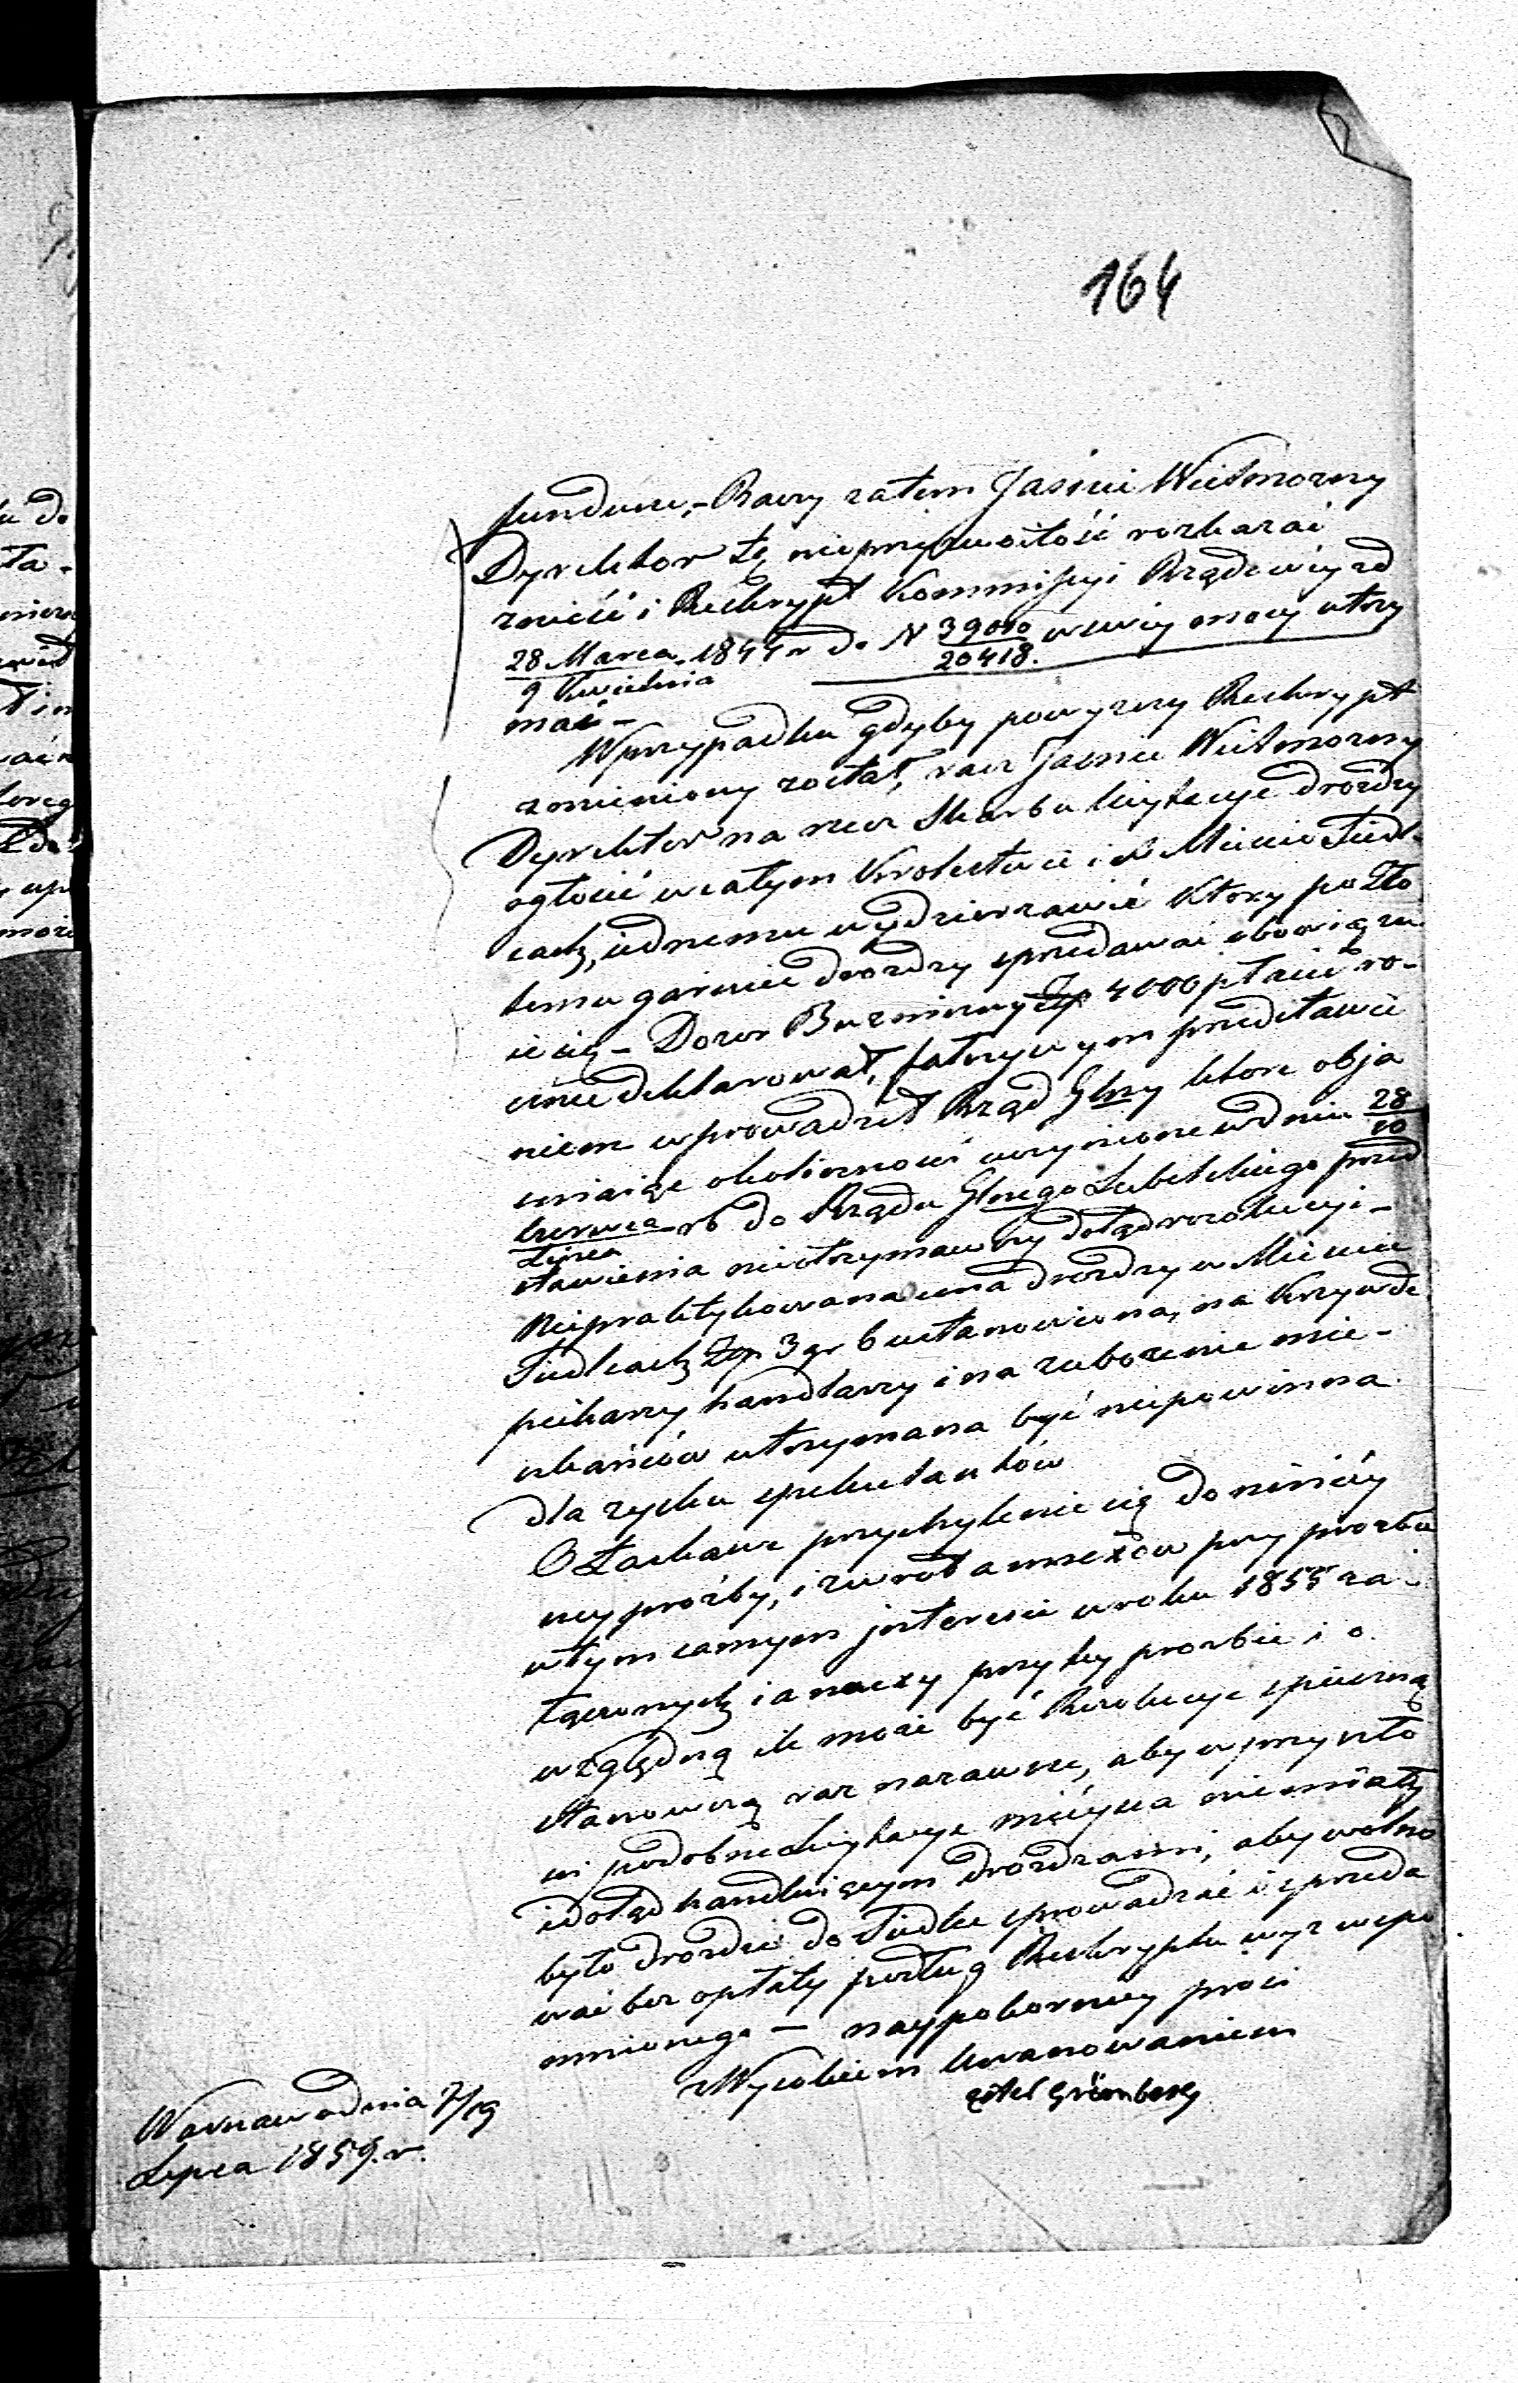 164
fundusze,- Raczy zatem Jaśnie Wielmożny
Dyrektor tę nieprzyzwoitość rozkazać
znieść i Reskrypt Kommissyi Rządowéy zd
28 Marca 1844 r do N 39010 w swéy mocy utrzy
9 Kwietnia 20418.
mać -
W przypadku gdyby powyzszy Reskrypt
zmieniony został, racz Jaśnie Wielmożny
Dyrektor na rzecz Skarbu licytacye drozdzy
ogłosić w całym Krolestwie i w Mieście Siedl-
cach, jednemu wydzierzawić Ktory po Zło
temu garniec drozdzy sprzedawać obowiąże
się - Dozor Bużniczny Złp 4000 płacić ro-
cznie deklarował, fałszywym przedstawie
niem wprowadził Rząd Glny ktore obja
sniaiąc okoliczności uczynione w dniu 28
10
Czerwca rb do Rządu Glnego Lubelskiego przed
Lipca
stawienia nieotrzymawszy dotąd rezolucyi -
Niepraktykowana cena drozdzy w Mieście
Siedlcach Złp 3 gr 6 ustanowiona, na Krzywdę
piekarzy handlarzy i na zubozenie mie-
szkańców utrzymana być niepowinna
dla zysku spekulantów
O Łaskawe przychylenie się do niniéy
szy prośby, i zwrot annexów przy prozbie
w tym samym interesie w roku 1855 za-
łączonych i annexy przy tey prozbie i o
względną ile może być Rezolucye spieszną
stanowczą raz nazawsze, aby w przyszło
ści podobne Licytacye mieysca niemiały
i dotąd handluiącym drozdzami, aby wolno
było drozdze do Siedlec sprowadzać i sprzeda
wać bez opłaty podług Reskryptu wyz wspo
mnionego - naypokorniéy prosi
z Wysokiem Uszanowaniem
Grünberg
Warszawa dnia 7/19
Lipca 1859. r.